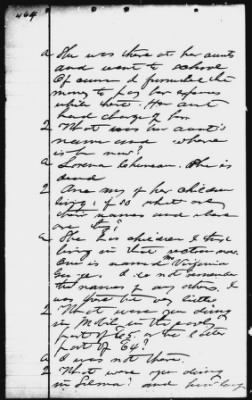 464
a She was there at her aunts
and went to school
Of course I furnished the
money to pay her expenses
while there. Her aunt
had charge of her
Q What was her aunt's
name and where
is she now?
a Lorena She is
dead
Q Are any of her children
living, if so what are
their names and where
are they?
a She has children I think
living in that
One is named Mrs Virginia
I do not remember
the names of any others. I
was there but very little.
Q What were you doing
in Mobile in the early
part of 63 or the latter
part of 64?
a I was not there.
Q What were you doing
in Selma? and how long